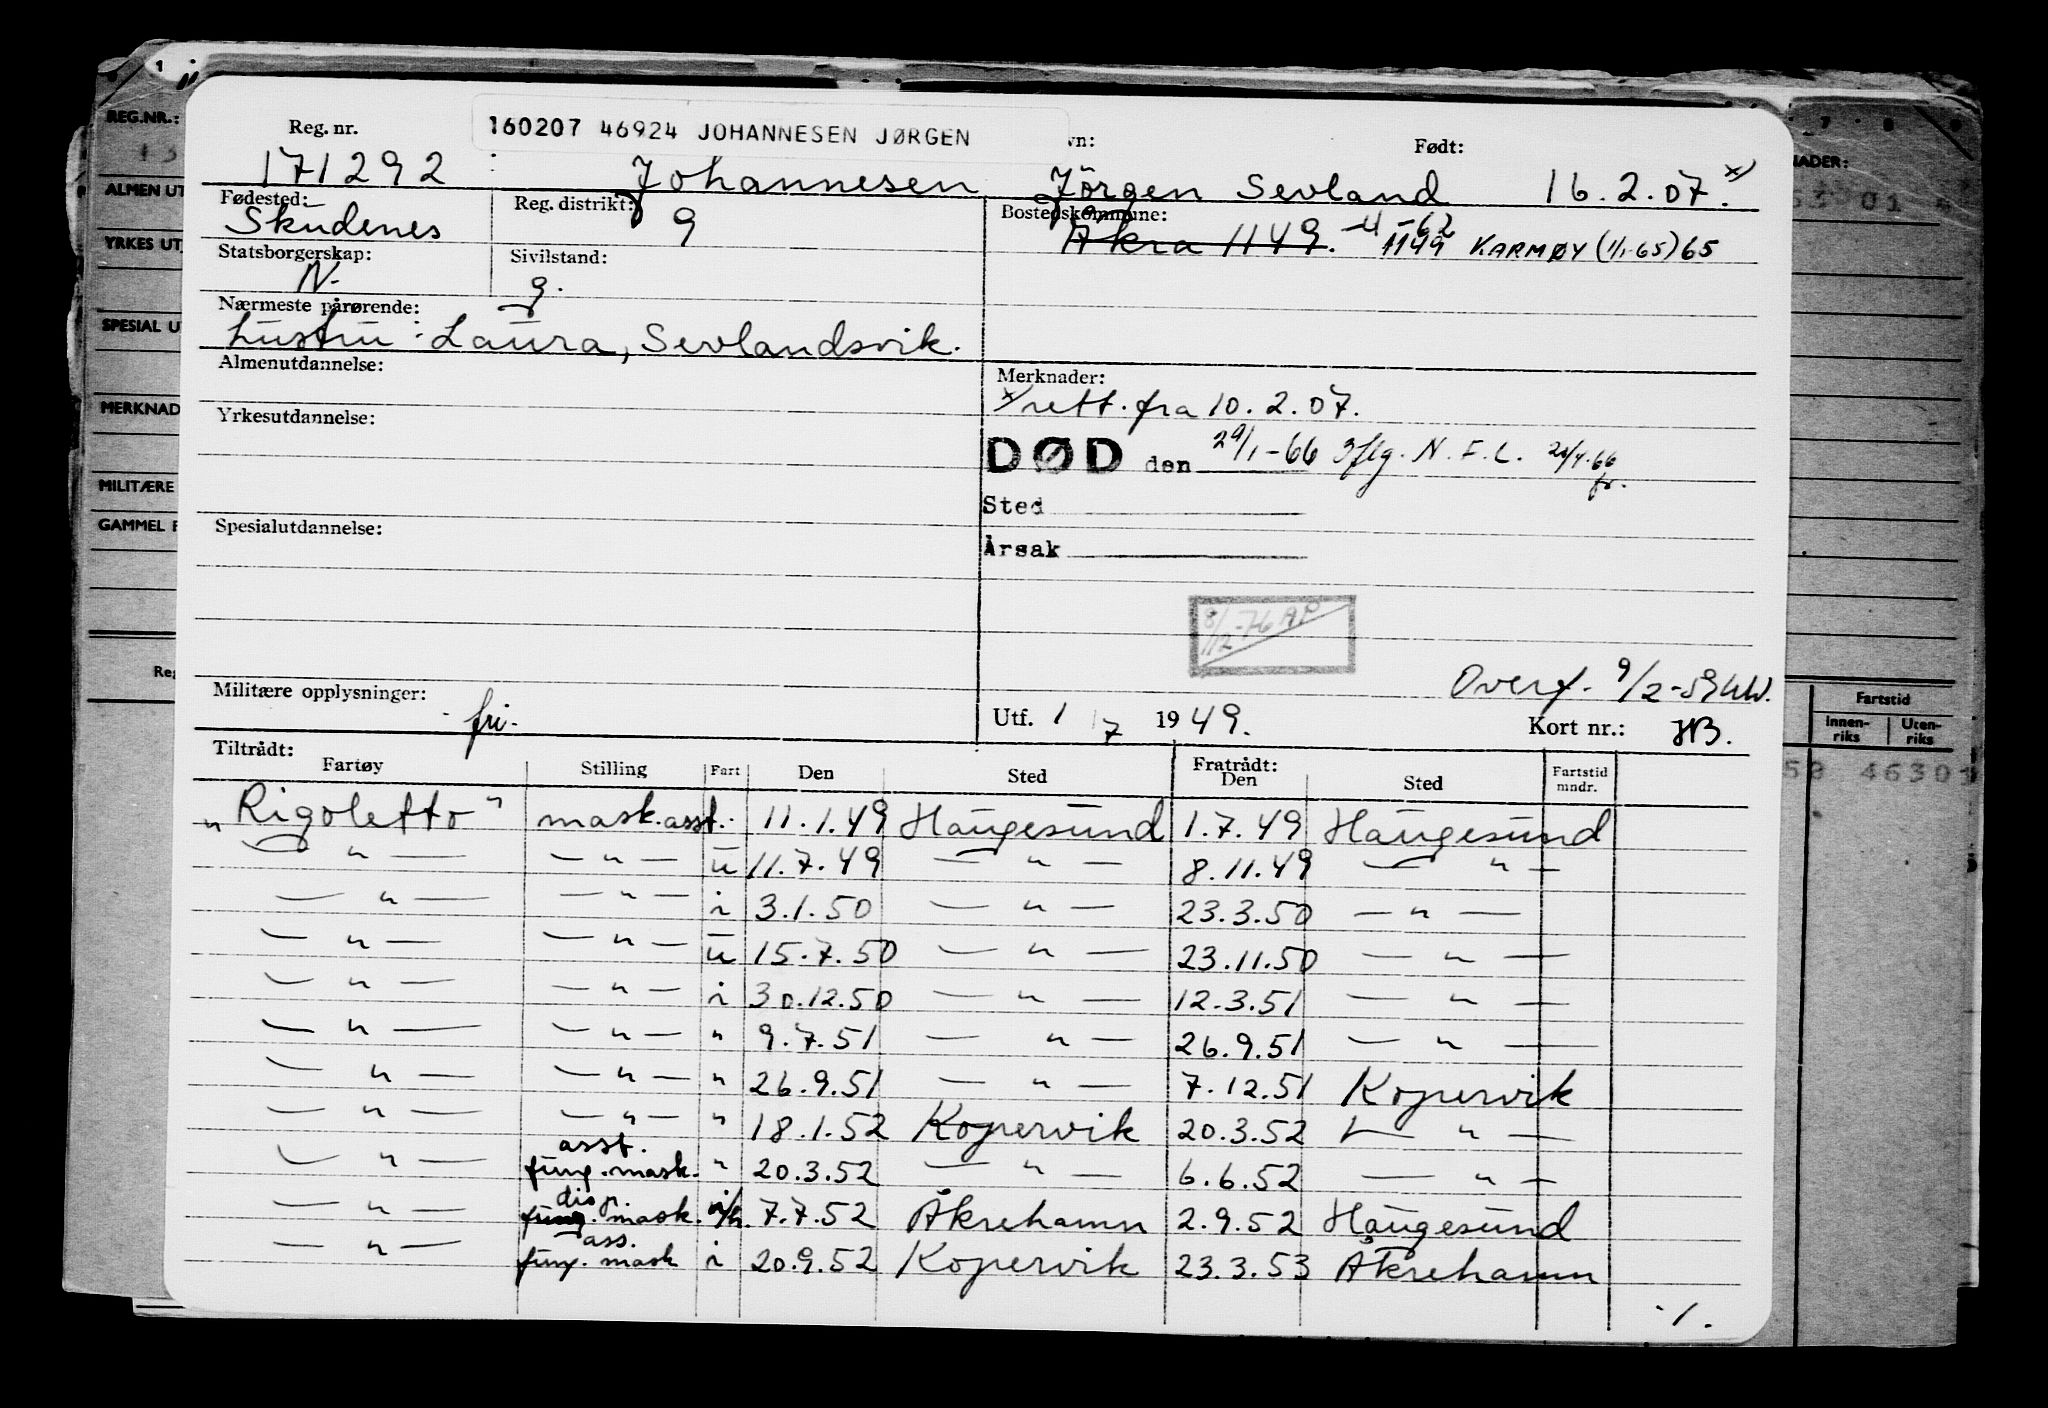 1
REG.NR.:
ALMEN UT
YRKES UT
SPESIAL U
MERKNAD
MILITÆRE
GAMMEL F
Reg
7 8 9
NADER:
Fartstid
Innen-riks Uten-riks
59 46301
160207 46924 JOHANNESEN JØRGEN
Reg. nr. vn: Født:
171292 Johannesen Jörgen Sevland 16.2.07. x)
Fødested: Reg. distrikt: Bostedskommune:
Skudenes 9 Åkra 1149. -4-62 1149 KARMØY (1/1-65) 65
Statsborgerskap: Sivilstand:
N. g.
Nærmeste pårørende:
hustru: Laura, Sevlandsvik.
Almenutdannelse: Merknader:
x) rett. fra 10.2.07.
Yrkesutdannelse:
DØD den 29/1-66 Iflg. N.F.L.
Sted
Spesialutdannelse:
Årsak
8/12-76 AP
Overf. 9/2-59
Militære opplysninger: fri.
Utf. 1/7 1949. Kort nr.: HB.
Tiltrådt: Fratrådt:
Fartøy Stilling Fart Den Sted Den Sted Fartstid mndr.
„Rigoletto" mask.asst. 11.1.49 Haugesund 1.7.49 Haugesund
— " — — " — u 11.7.49 — " — 8.11.49 — " —
— " — — " — i 3.1.50 — " — 23.3.50 — " —
— " — — " — u 15.7.50 — " — 23.11.50 — " —
— " — — " — i 30.12.50 — " — 12.3.51 — " —
— " — — " — " 9.7.51 — " — 26.9.51 — " —
— " — — " — " 26.9.51 — " — 7.12.51 Kopervik
— " — — " — " 18.1.52 Kopervik 20.3.52 — " —
— " — asst. fung. mask. " 20.3.52 — " — 6.6.52 — " —
— " — disp. fung. mask. 7.7.52 Åkrehamn 2.9.52 Haugesund
— " — ass. fung. mask i 20.9.52 Kopervik 23.3.53 Åkrehamn
./.